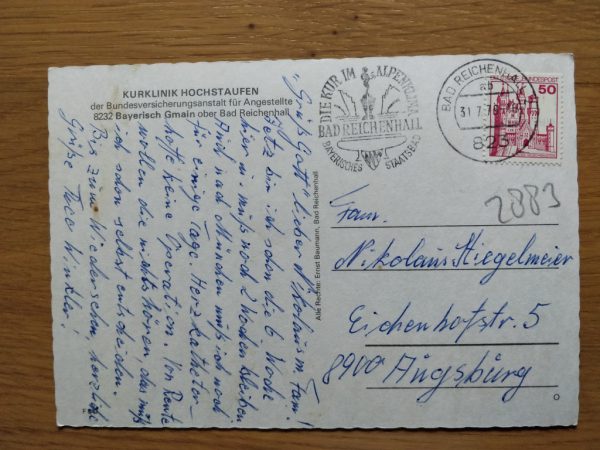 KURKLINIK HOCHSTAUFEN
der Bundesversicherungsanstalt für Angestellte
8232 Bayerisch Gmain ober Bad Reichenhall
"Grüß Gott" lieber Nikolaus m. Fam.!
Jetzt bin ich schon die 6. Woche
hier u. muß noch 2 Wochen bleiben
Und nach München muß ich noch
für einige Tage. Herzkatheter-
hoffe keine Operation. Von Rente
wollen die nichts hören das muß
ich schon selbst entscheiden.
Bis zum Wiedersehen, herzliche
Grüße Theo Winkler!
Alle Rechte: Ernst Baumann, Bad Reichenhall
DIE KUR IM ALPENKLIMA
BAD REICHENHALL
BAYERISCHES STAATSBAD
BAD REICHENHALL
31.7.
823
BUNDESPOST
50
2883
Fam.
Nikolaus Stiegelmeier
Eichenhofstr. 5
8900 Augsburg